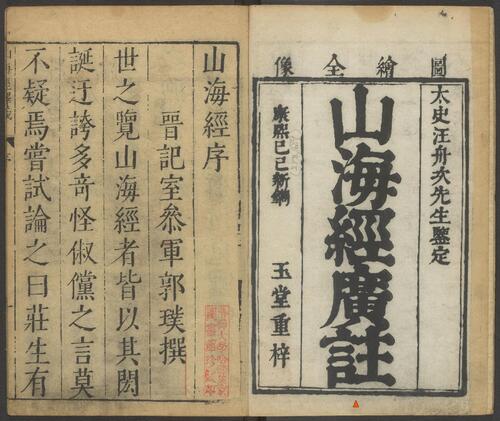 圖繪全像
太史汪舟次先生鑒定
山海經廣註
康熙己巳新鐫
玉堂重梓
山海經序
晉記室叅軍郭璞撰
世之覽山海經者皆以其閎
誕迂誇多竒怪俶儻之言莫
不疑焉嘗試論之曰莊生有